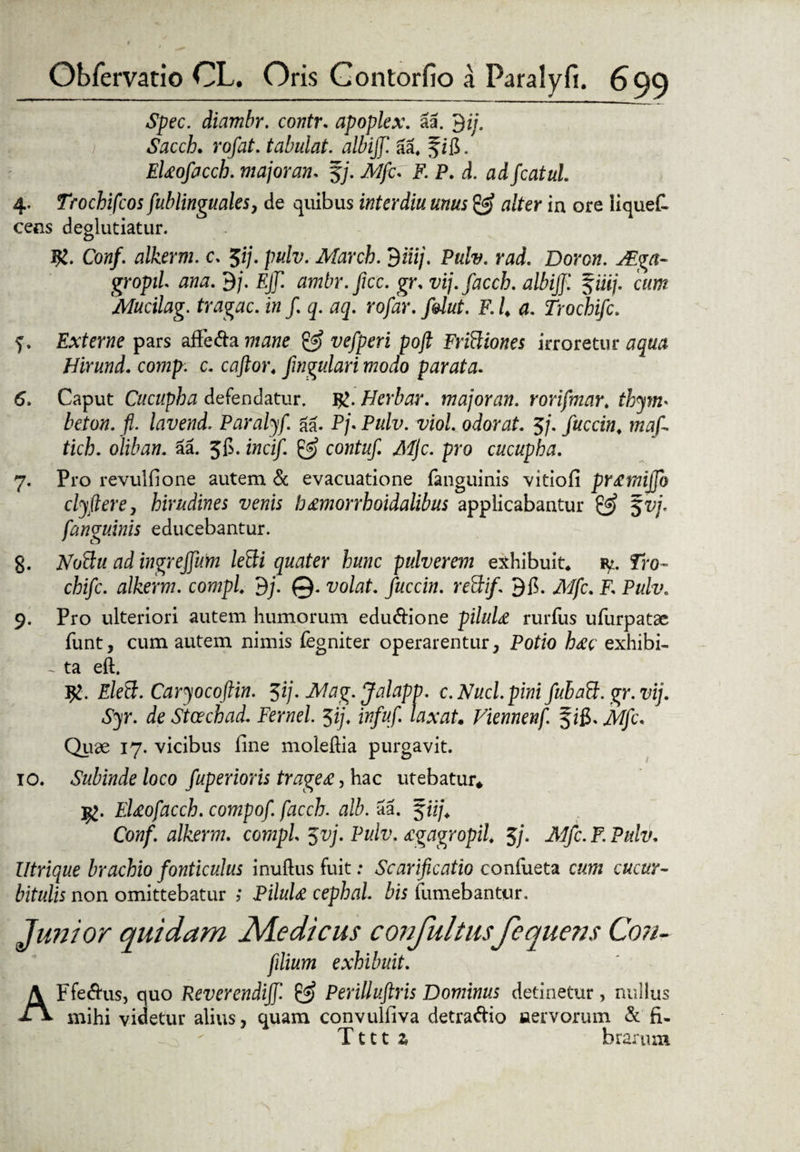 Obſervatio CL. Oris Contorſio à Paralyſi. 699
Spec. diambr. contr. apoplex. āā. ℈ij.
Sacch. roſat. tabulat. albiſſ. āā. ℥iß.
Elæoſacch. majoran. ℥j. Mſc. F. P. d. ad ſcatul.
4. Trochiſcos ſublinguales, de quibus interdiu unus & alter in ore liqueſ-
cens deglutiatur.
℞. Conf. alkerm. c. ʒij. pulv. March. ℈iiij. Pulv. rad. Doron. Æga-
gropil. ana. ℈j. Eſſ. ambr. ſicc. gr. vij. ſacch. albiſſ. ℥iiij. cum
Mucilag. tragac. in ſ. q. aq. roſar. ſolut. F. l. a. Trochiſc.
5. Externe pars affecta mane & veſperi poſt Frictiones irroretur aqua
Hirund. comp. c. caſtor. ſingulari modo parata.
6. Caput Cucupha defendatur. ℞. Herbar. majoran. roriſmar. thym.
beton. fl. lavend. Paralyſ. āā. Pj. Pulv. viol. odorat. ʒj. ſuccin. maſ-
tich. oliban. āā. ʒß. inciſ. & contuſ. Mſc. pro cucupha.
7. Pro revulſione autem & evacuatione ſanguinis vitioſi præmiſſo
clyſtere, hirudines venis hæmorrhoidalibus applicabantur & ℥vj.
ſanguinis educebantur.
8. Noctu ad ingreſſum lecti quater hunc pulverem exhibuit. ℞. Tro-
chiſc. alkerm. compl. ℈j. 🜔. volat. ſuccin. rectif. ℈ß. Mſc. F. Pulv.
9. Pro ulteriori autem humorum eductione pilulæ rurſus uſurpatæ
ſunt, cum autem nimis ſegniter operarentur, Potio hæc exhibi-
ta eſt.
℞. Elect. Caryocoſtin. ʒij. Mag. Jalapp. c. Nucl. pini ſubact. gr. vij.
Syr. de Stœchad. Fernel. ʒij. infuſ. laxat. Viennenſ. ℥iß. Mſc.
Quæ 17. vicibus ſine moleſtia purgavit.
10. Subinde loco ſuperioris trageæ, hac utebatur.
℞. Elæoſacch. compoſ. ſacch. alb. āā. ℥iij.
Conf. alkerm. compl. ʒvj. Pulv. ægagropil. ʒj. Mſc. F. Pulv.
Utrique brachio fonticulus inuſtus fuit: Scarificatio conſueta cum cucur-
bitulis non omittebatur; Pilulæ cephal. bis ſumebantur.
Junior quidam Medicus conſultus ſequens Con-
ſilium exhibuit.
AFfectus, quo Reverendiſſ. & Perilluſtris Dominus detinetur, nullus
mihi videtur alius, quam convulſiva detractio nervorum & fi-
Tttt 2 brarum